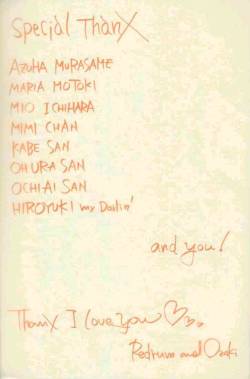 Special ThanX
AZUHA MURASAME
MARIA MOTOKI
MIO ICHIHARA
MIMI CHAN
KABE SAN
OHURA SAN
OCHIAI SAN
HIROYUKI my Darlin'
and you!
ThanX I Love you
Redrum and